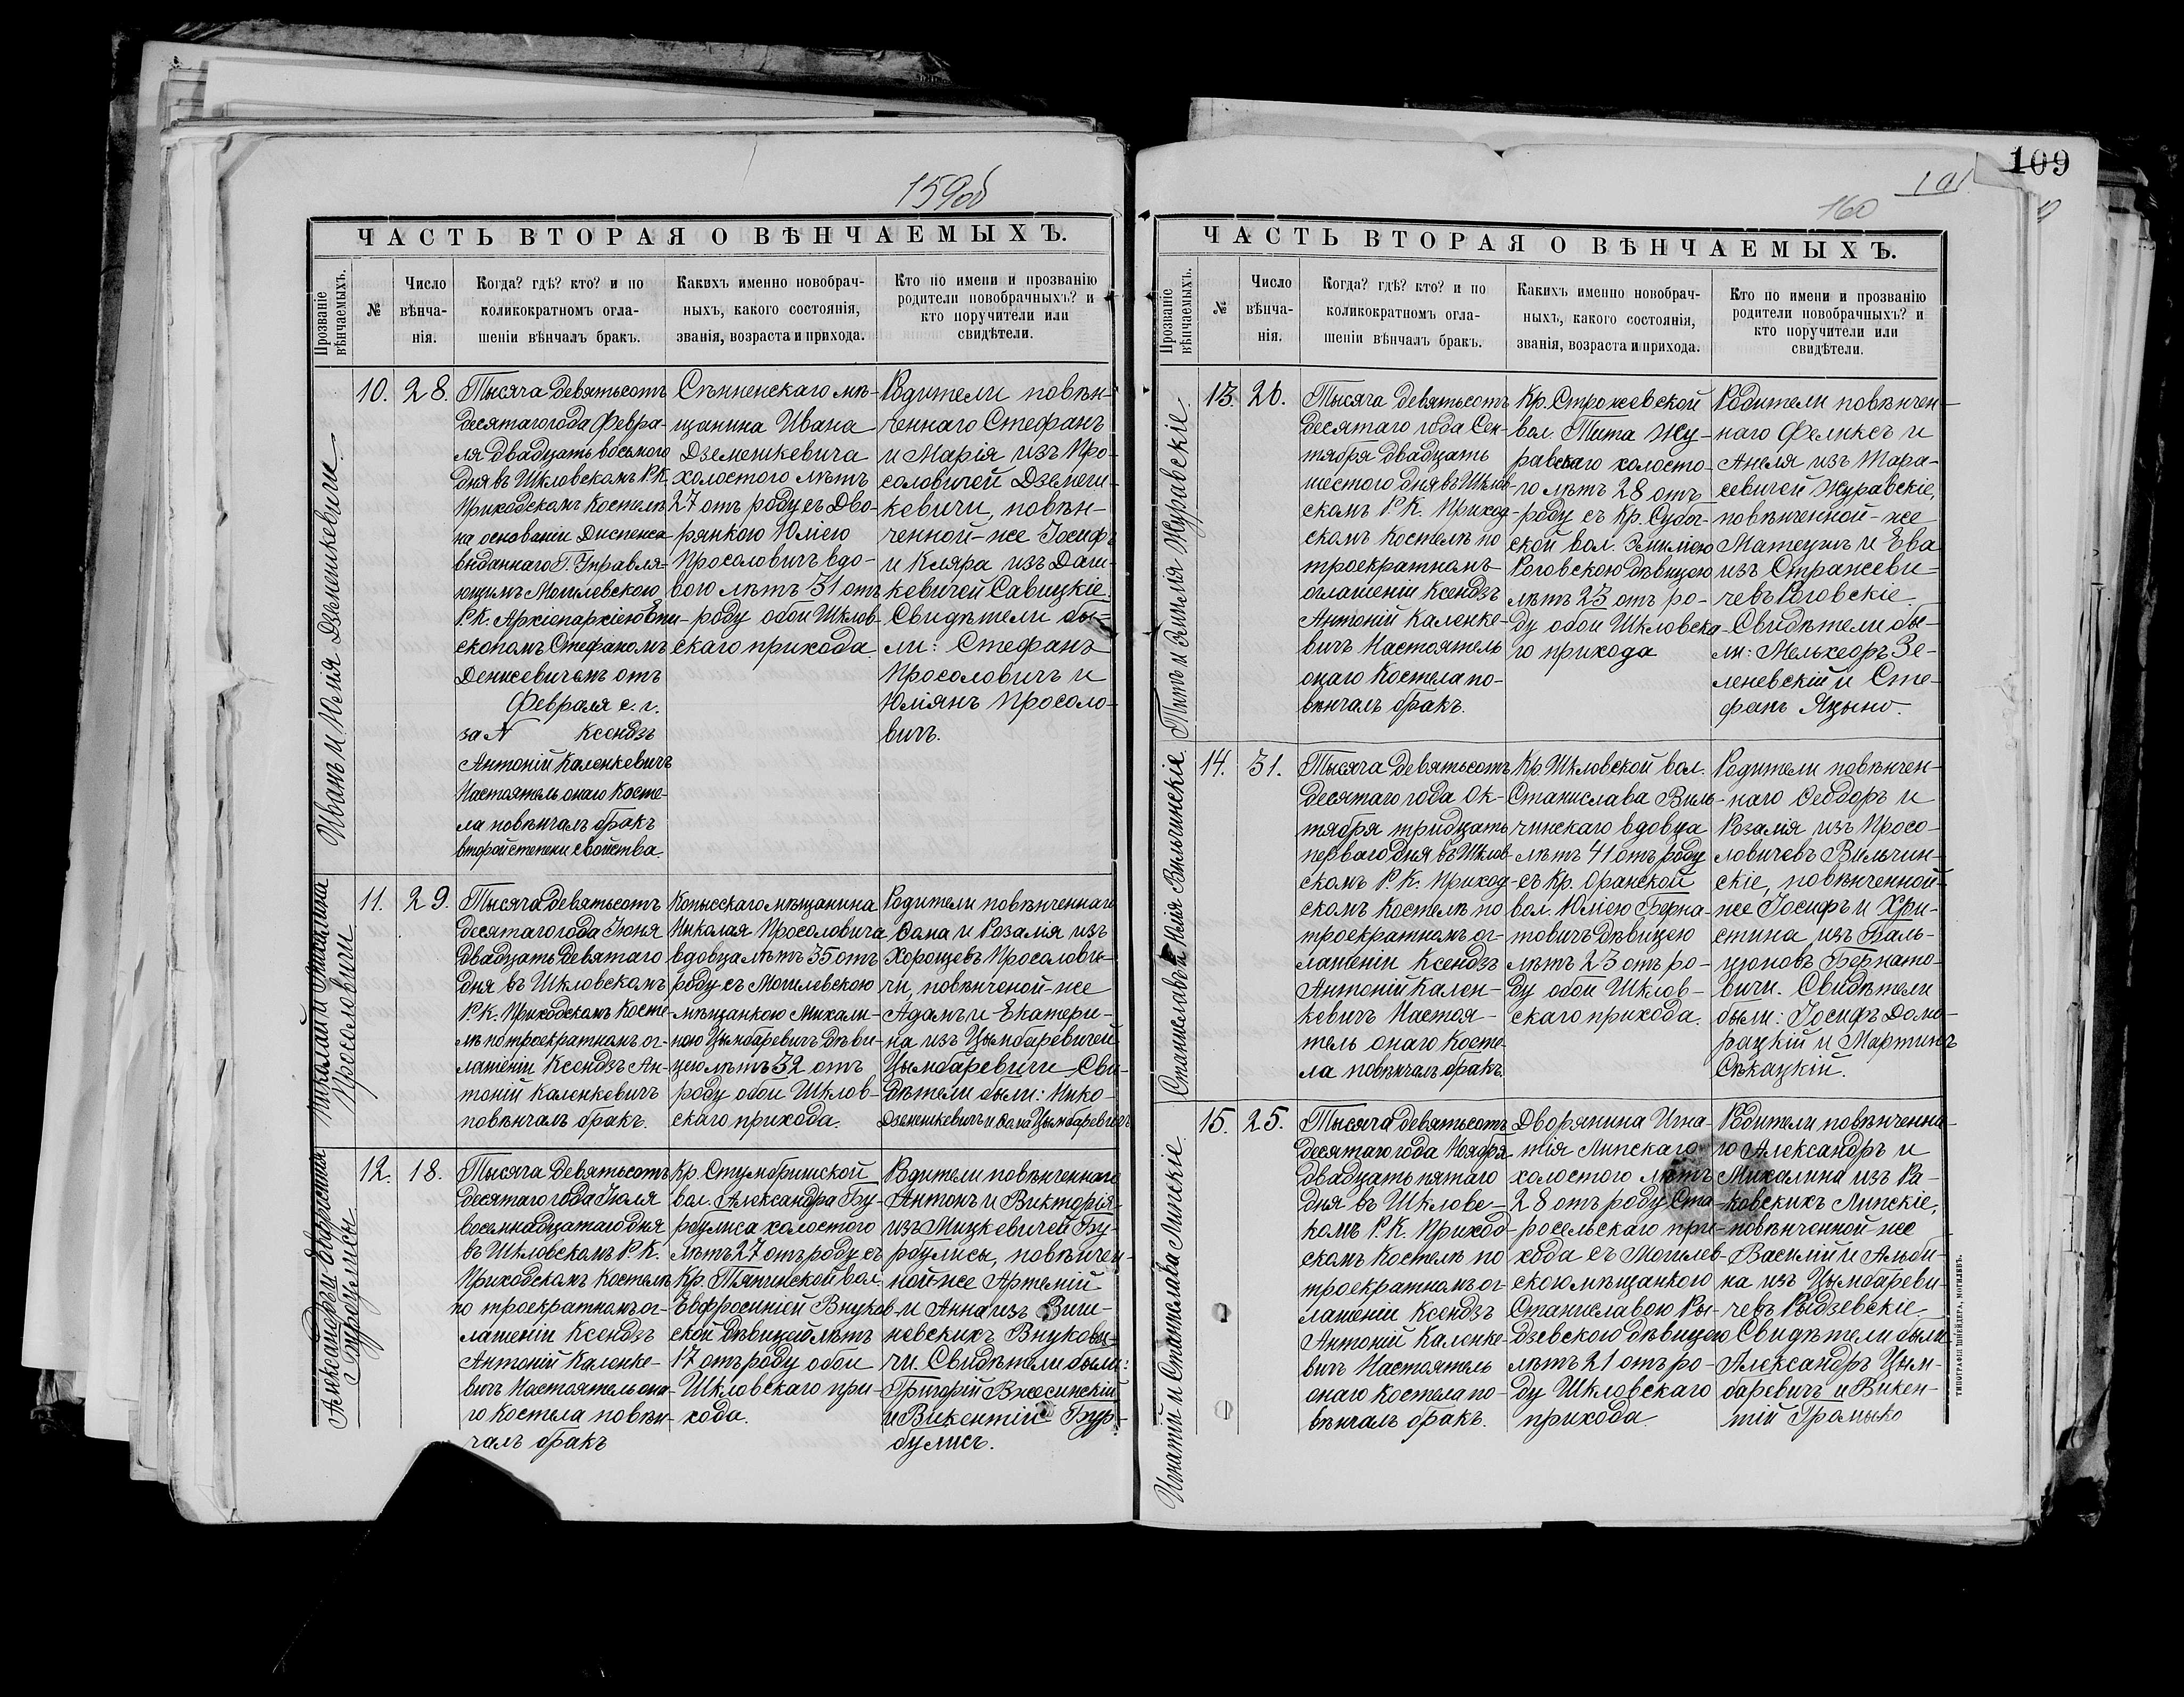 159об
ЧАСТЬ ВТОРАЯ О ВѢНЧАЕМЫХЪ.
Прозваніе вѣнчаемыхъ.
№
Число вѣнча-нія.
Когда? гдѣ? кто? и по
коликократномъ огла-
шеніи вѣнчалъ бракъ.
Какихъ именно новобрач-
ныхъ, какого состоянія,
званія, возраста и прихода.
Кто по имени и прозванію
родители новобрачныхъ? и
кто поручители или
свидѣтели.
Иванъ и Юлія Дземешкевичи
10.
28.
Тысяча девятьсотъ
десятаго года Февра-
ля двадцать восьмого
дня въ Шкловскомъ Р.К.
Приходскомъ Костелѣ
на основаніи Диспенса
выданнаго Г. Управля-
ющимъ Могилевскою
Р.К. Архіепархіею Епи-
скопомъ Стефаномъ
Денисевичемъ отъ
Февраля с. г.
за N Ксендзъ
Антоній Каленкевичъ
Настоятель онаго Косте-
ла повѣнчалъ бракъ
второй степени свойства.
Сѣнненскаго мѣ-
щанина Ивана
Дземешкевича
холостого лѣтъ
27 отъ роду съ Дво-
рянкою Юліею
Просоловичъ вдо-
вою лѣтъ 31 отъ
роду обои Шклов-
скаго прихода.
Родители повѣн-
ченнаго Стефанъ
и Марія изъ Про-
соловичей Дземеш-
кевичи, повѣн-
ченной-же Іосифъ
и Кляра изъ Даш-
кевичей Савицкіе.
Свидѣтели бы-
ли: Стефанъ
Просоловичъ и
Юліянъ Просоло-
вичъ.
Николай и Михалина
Просоловичи
11.
29.
Тысяча девятьсотъ
десятаго года Іюня
двадцать девятаго
дня въ Шкловскомъ
Р.К. Приходскомъ Косте-
лѣ по троекратномъ ог-
лашеніи Ксендзъ Ан-
тоній Каленкевичъ
повѣнчалъ бракъ.
Копысскаго мѣщанина
Николая Просоловича
вдовца лѣтъ 35 отъ
роду съ Могилевскою
мѣщанкою Михали-
ною Цымбаревичъ дѣви-
цею лѣтъ 32 отъ
роду обои Шклов-
скаго прихода.
Родители повѣнченнаго
Ѳома и Розалія изъ
Хорощевъ Просолови-
чи, повѣнчоной-же
Адамъ и Екатери-
на изъ Цымбаревичей
Цымбаревичи. Сви-
дѣтели были: Нико-
Дземешкевичъ и Ѳома Цымбаревичъ
Александръ и Евфросинія
Бурбулисы
12.
18.
Тысяча Девятьсотъ
десятаго года Іюля
восемнадцатаго дня
въ Шкловскомъ Р. К.
Приходскомъ Костелѣ
по троекратномъ ог-
лашеніи Ксендзъ
Антоній Каленке-
вичъ Настоятель она-
го Костела повѣн-
чалъ бракъ
Кр.
вол. Александра Бу-
рбулиса холостого
лѣтъ 27 отъ роду съ
Кр. Тяпинской вол.
Евфросиніей Внуков-
ской дѣвицей лѣтъ
17 отъ роду обои
Шкловскаго при-
хода.
Родители повѣнченнаго
Антонъ и Викторія
изъ Мицкевичей Бу-
рбулисы, повѣнчен-
ной-же Артемій
и Анна изъ Виш-
невскихъ Внукови-
чи. Свидѣтели были:
Григорій
и Викентій Бур-
булисъ.
109
101
160
ЧАСТЬ ВТОРАЯ О ВѢНЧАЕМЫХЪ.
Прозваніе вѣнчаемыхъ.
№
Число вѣнча-нія.
Когда? гдѣ? кто? и по
коликократномъ огла-
шеніи вѣнчалъ бракъ.
Какихъ именно новобрач-
ныхъ, какого состоянія,
званія, возраста и прихода.
Кто по имени и прозванію
родители новобрачныхъ? и
кто поручители или
свидѣтели.
Титъ и Эмилія Журавскіе.
13.
26.
Тысяча девятьсотъ
десятаго года Сен-
тября двадцать
шестого дня въ Шклов-
скомъ Р. К. Приход-
скомъ Костелѣ по
троекратномъ
оглашеніи Ксендзъ
Антоній Каленке-
вичъ Настоятель
онаго Костела по-
вѣнчалъ бракъ.
Кр. Строжевской
вол. Тита Жу-
равскаго холосто-
го лѣтъ 28 отъ
роду съ Кр. Субоч-
ской вол. Эмиліею
Роговскою дѣвицею
лѣтъ 23 отъ ро-
ду обои Шкловска-
го прихода
Родители повѣнчен-
наго Феликсъ и
Анеля изъ Тара-
севичей Журавскіе,
повѣнченной-же
Матеушъ и Ева
изъ Стражеви-
чевъ Роговскіе.
Свидѣтели бы-
ли: Мельхеоръ Зе-
леневскій и Сте-
фанъ Яцыно.
Станиславъ и Юлія Вильчинскіе.
14.
31.
Тысяча девятьсотъ
десятаго года Ок-
тября тридцать
перваго дня въ Шклов-
скомъ Р. К. Приход-
скомъ Костелѣ по
троекратномъ ог-
лашеніи Ксендзъ
Антоній Кален-
кевичъ Настоя-
тель онаго Косте-
ла повѣнчалъ бракъ.
Кр. Шкловской вол.
Станислава Виль-
чинскаго вдовца
лѣтъ 41 отъ роду
съ Кр. Оранской
вол. Юліею Берна-
товичъ дѣвицею
лѣтъ 23 отъ ро-
ду обои Шклов-
скаго прихода.
Родители повѣнчен-
наго Ѳеодоръ и
Розалія изъ Просо-
ловичевъ Вильчин-
скіе, повѣнченной-
же Іосифъ и Хри-
стина изъ Баль-
цюновъ Бернато-
вичи. Свидѣтели
были: Іосифъ Дома-
рацкій и Мартинъ
Сѣкацкій.
Игнатій и Станислава Липскіе.
15.
25.
Тысяча девятьсотъ
десятаго года Ноября
двадцать пятаго
дня въ Шкловс-
комъ Р. К. Приход-
скомъ Костелѣ по
троекратномъ ог-
лашеніи Ксендзъ
Антоній Каленке-
вичъ Настоятель
онаго Костела по-
вѣнчалъ бракъ.
Дворянина Игна-
тія Липскаго
холостого лѣтъ
28 отъ роду Ста-
росельскаго при-
хода съ Могилев-
скою мѣщанкою
Станиславою Ры-
дзевскою дѣвицею
лѣтъ 21 отъ ро-
ду Шкловскаго
прихода.
Родители повѣнченна-
го Александръ и
Михалина изъ Ра-
ковскихъ Липскіе,
повѣнченной же
Василій и Альби-
на изъ Цымбареви-
чевъ Рыдзевскіе
Свидѣтели были
Александръ Цым-
баревичъ и Викен-
тій Громыко
ТИПОГРАФІЯ ШНЕЙДЕРА, МОГИЛЕВЪ.